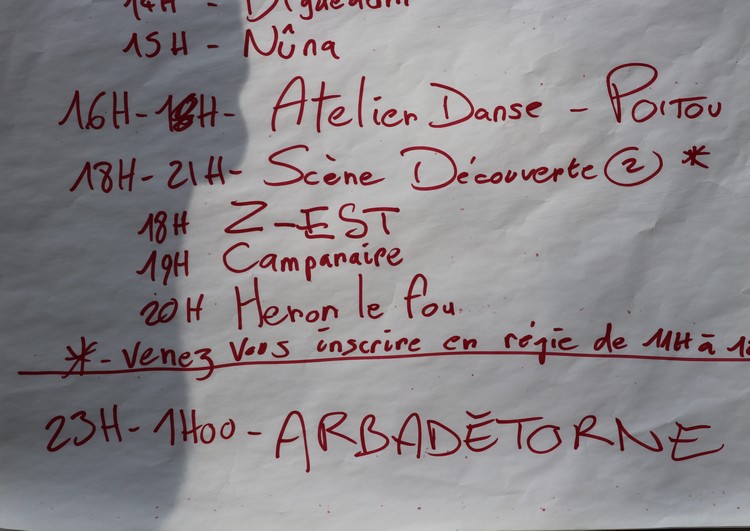 14H -
15H - Nûna
16H-18H- Atelier Danse - POITOU
18H-21H- Scène Découverte (2) *
18H Z-EST
19H Campanaire
20H Heron le fou.
*- Venez Vous inscrire en régie de 11H à
23H-1H00-ARBADĔTORNE